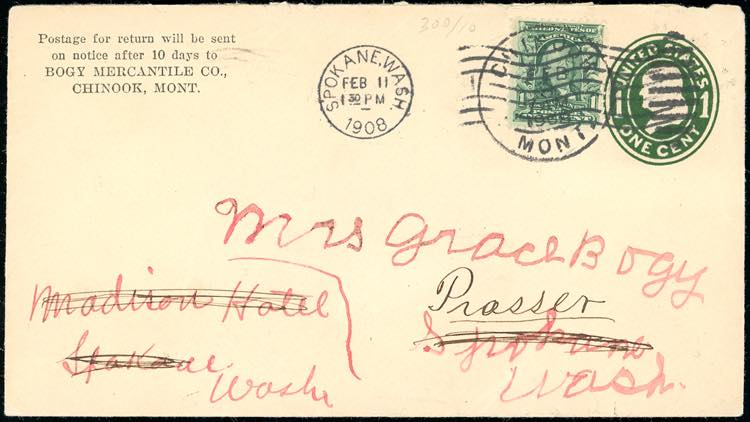 Postage for return will be sent
on notice after 10 days to
BOGY MERCANTILE CO.,
CHINOOK, MONT.
300/10
SPOKANE, WASH.
FEB 11
1 30 PM
1908
MONT.
UNITED STATES OF
AMERICA
1 1
UNITED STATES
1 1
ONE CENT
Mrs Grace Bogy
Prosser
Spokane
Wash.
Madison Hotel
Spokane
Wash